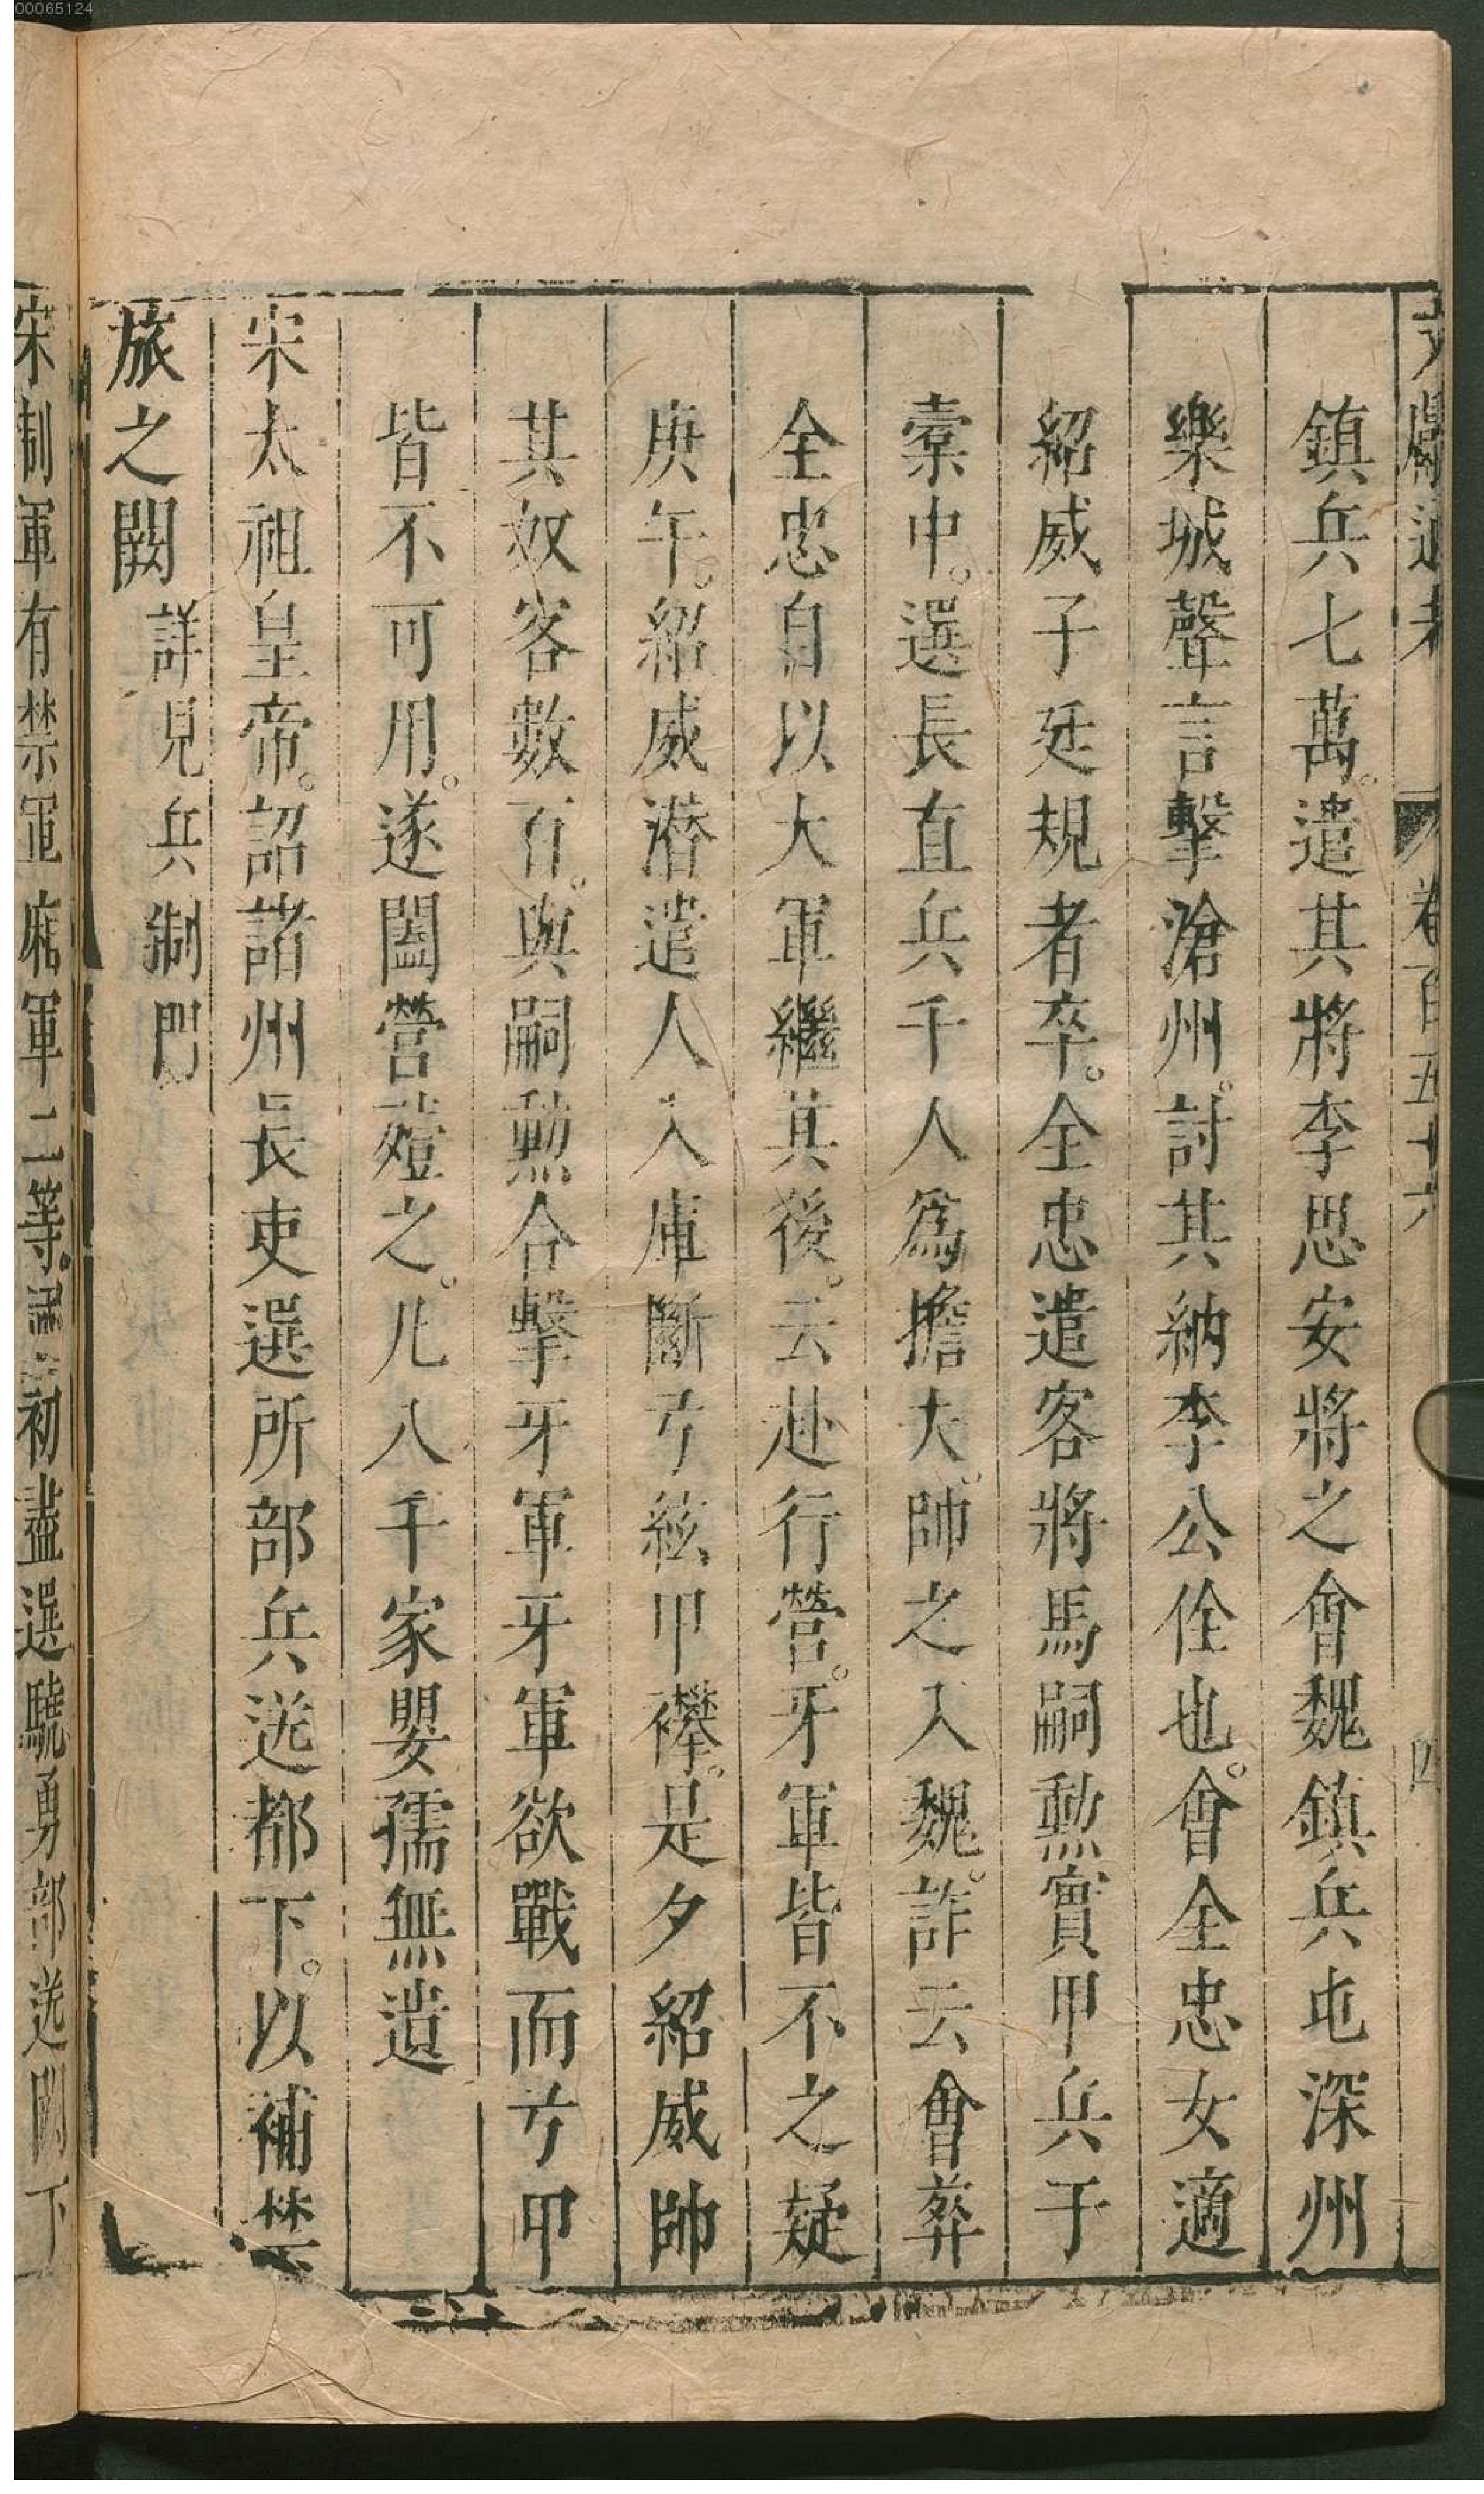 00065124
文獻通考 卷百五十六 四
鎮兵七萬。遣其將李思安將之會魏鎮兵屯深州
樂城聲言擊滄州。討其納李公佺也。會全忠女適
紹威子廷規者卒。全忠遣客將馬嗣勲實甲兵于
橐中。選長直兵千人爲擔夫。帥之入魏。詐云會葬
全忠自以大軍繼其後。云赴行營。牙軍皆不之疑
庚午。紹威潜遣人入庫斷弓絃甲襻。是夕紹威帥
其奴客數百。與嗣勲合擊牙軍牙軍欲戰而弓甲
皆不可用。遂闔營殪之。凡八千家嬰孺無遺
宋太祖皇帝。詔諸州長吏選所部兵送都下。以補禁
旅之闕 詳見兵制門
宋制軍有禁軍廂軍二等。初盡選驍勇部送闕下